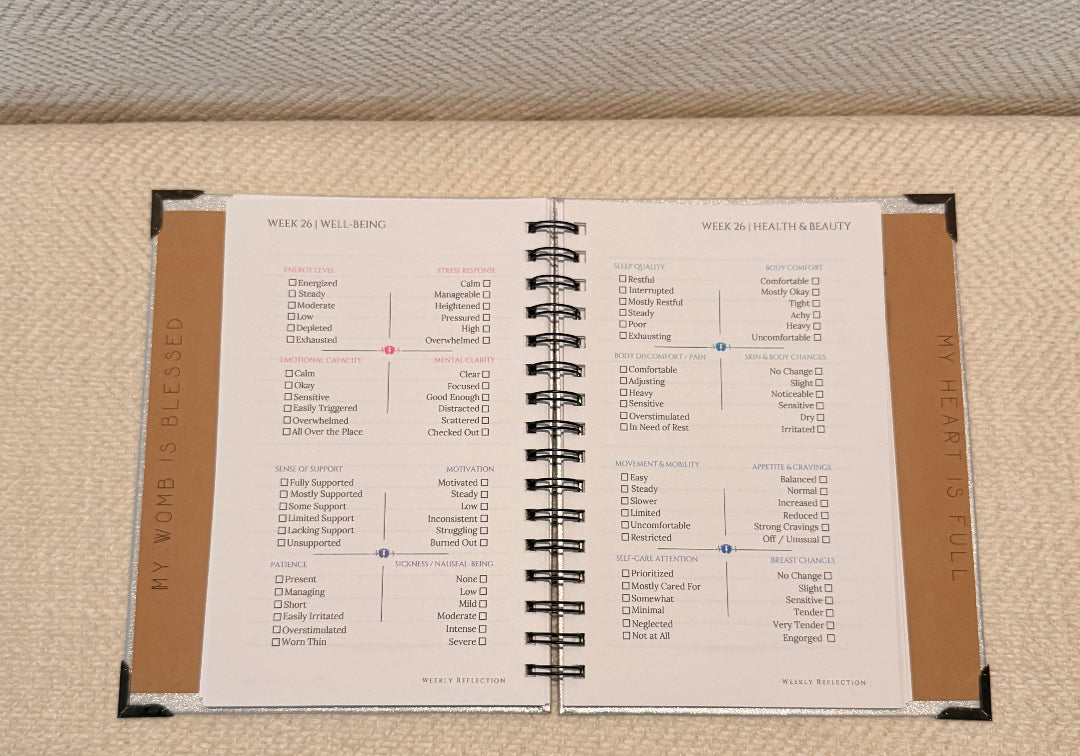 MY WOMB IS BLESSED
WEEK 26 | WELL-BEING
ENERGY LEVEL
Energized
Steady
Moderate
Low
Depleted
Exhausted
STRESS RESPONSE
Calm
Manageable
Heightened
Pressured
High
Overwhelmed
EMOTIONAL CAPACITY
Calm
Okay
Sensitive
Easily Triggered
Overwhelmed
All Over the Place
MENTAL CLARITY
Clear
Focused
Good Enough
Distracted
Scattered
Checked Out
SENSE OF SUPPORT
Fully Supported
Mostly Supported
Some Support
Limited Support
Lacking Support
Unsupported
MOTIVATION
Motivated
Steady
Low
Inconsistent
Struggling
Burned Out
PATIENCE
Present
Managing
Short
Easily Irritated
Overstimulated
Worn Thin
SICKNESS / NAUSEAL-BEING
None
Low
Mild
Moderate
Intense
Severe
WEEKLY REFLECTION
WEEK 26 | HEALTH & BEAUTY
SLEEP QUALITY
Restful
Interrupted
Mostly Restful
Steady
Poor
Exhausting
BODY COMFORT
Comfortable
Mostly Okay
Tight
Achy
Heavy
Uncomfortable
BODY DISCOMFORT / PAIN
Comfortable
Adjusting
Heavy
Sensitive
Overstimulated
In Need of Rest
SKIN & BODY CHANGES
No Change
Slight
Noticeable
Sensitive
Dry
Irritated
MOVEMENT & MOBILITY
Easy
Steady
Slower
Limited
Uncomfortable
Restricted
APPETITE & CRAVINGS
Balanced
Normal
Increased
Reduced
Strong Cravings
Off / Unusual
SELF-CARE ATTENTION
Prioritized
Mostly Cared For
Somewhat
Minimal
Neglected
Not at All
BREAST CHANGES
No Change
Slight
Sensitive
Tender
Very Tender
Engorged
WEEKLY REFLECTION
MY HEART IS FULL